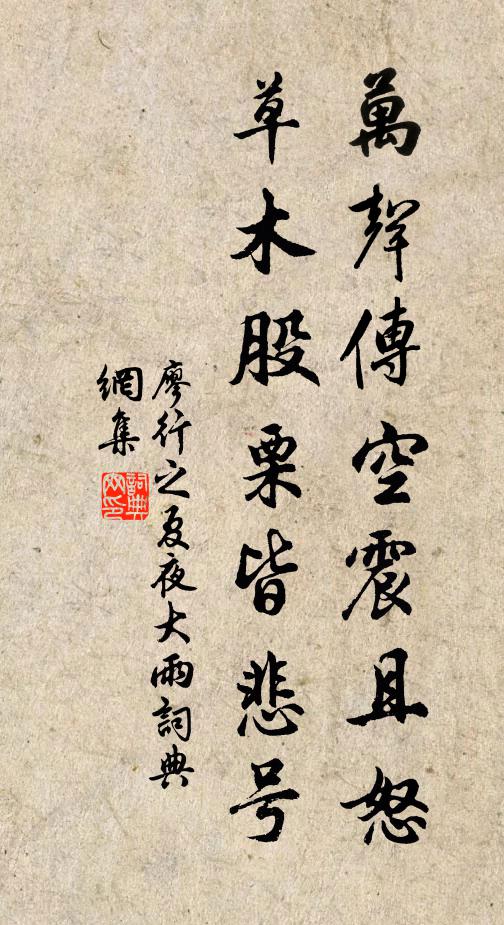 萬聲傳空震且怒
草木股栗皆悲号
廖行之夏夜大雨詞典
網集
詞典
网印